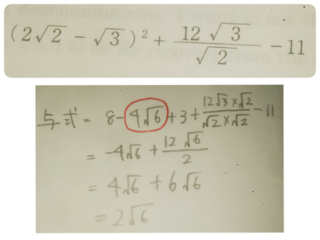 (2√2 − √3)² + 12√3/√2 − 11
与式 = 8 - 4√6 + 3 + 12√3×√2/√2×√2 - 11
= -4√6 + 12√6/2
= 4√6 + 6√6
= 2√6